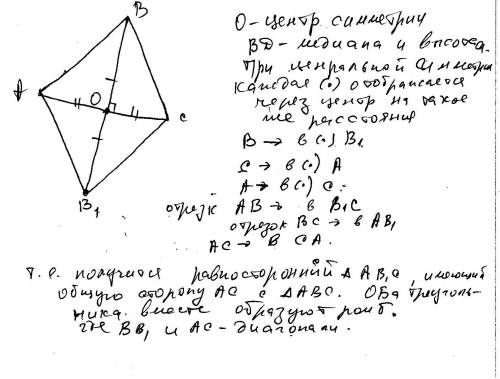 B
A
O
C
B₁
O - центр симметрии
BD - медиана и высота.
При центральной симметрии
каждая (·) отображается
через центр на такое
же расстояние
B → в (·) B₁
C → в (·) A
A → в (·) C.
отрезок AB → в B₁C
отрезок BC → в AB₁
AC → в CA.
Т.е. получился равносторонний Δ AB₁C, имеющий
общую сторону AC с ΔABC. Оба треуголь-
ника вместе образуют ромб.
где BB₁ и AC - диагонали.